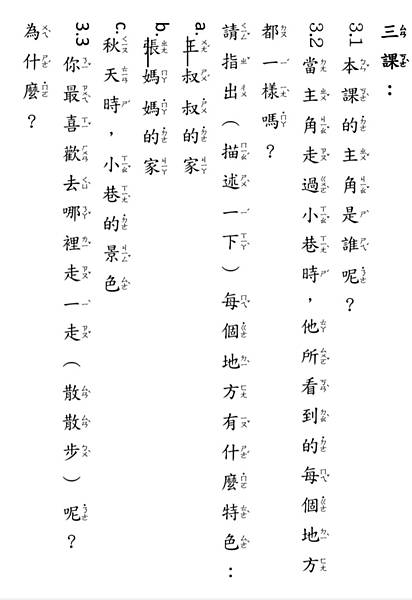 三課：
3.1 本課的主角是誰呢？
3.2 當主角走過小巷時，他所看到的每個地方
都一樣嗎？
請指出（描述一下）每個地方有什麼特色：
a. 王叔叔的家
b. 張媽媽的家
c. 秋天時，小巷的景色
3.3 你最喜歡去哪裡走一走（散散步）呢？
為什麼？